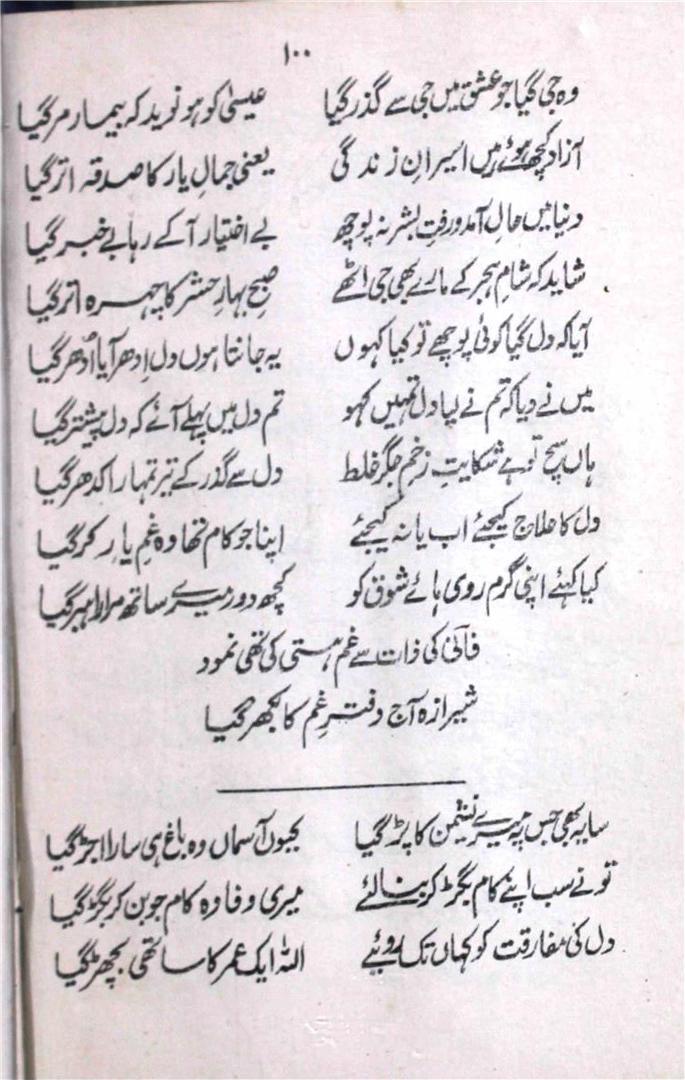 ۱۰۰
وہ جی گیا جو عشق میں جی سے گذر گیا عیسیٰ کو ہو نوید کہ بیمار مر گیا
آزاد کچھ ہوئے ہیں اسیرانِ زندگی یعنی جمالِ یار کا صدقہ اتر گیا
دنیا میں حالِ آمد و رفتِ بشر نہ پوچھ بے اختیار آ کے رہا بے خبر گیا
شاید کہ شامِ ہجر کے مارے بھی جی اٹھے صبحِ بہارِ حشر کا چہرہ اتر گیا
آیا کہ دل گیا کوئی پوچھے تو کیا کہوں یہ جانتا ہوں دل اِدھر آیا اُدھر گیا
میں نے دیا کہ تم نے لیا دل تمہیں کہو تم دل میں پہلے آئے کہ دل پیشتر گیا
ہاں سچ تو ہے شکایتِ زخمِ جگر غلط دل سے گذر کے تیر تمہارا کدھر گیا
دل کا علاج کیجئے اب یا نہ کیجئے اپنا جو کام تھا وہ غمِ یار کر گیا
کیا کہئے اپنی گرم روی ہائے شوق کو کچھ دور میرے ساتھ مرا راہبر گیا
فانی کی ذات سے غمِ ہستی کی تھی نمود
شیرازہ آج دفترِ غم کا بکھر گیا
سایہ بھی جس پہ میرے نشیمن کا پڑ گیا کیوں آسماں وہ باغ ہی سارا اجڑ گیا
تو نے سب اپنے کام بگڑ کر بنا لئے میری وفا وہ کام جو بن کر بگڑ گیا
دل کی مفارقت کو کہاں تک روئیے اللہ ایک عمر کا ساتھی بچھڑ گیا